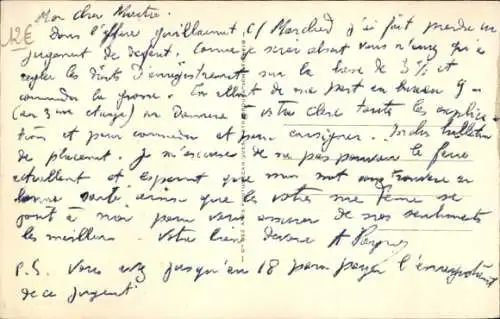 12€
Mon cher Maître.
Dans l'affaire Guillaumet c/ Marchand j'ai fait prendre un
jugement de défaut. Comme je serai absent vous n'aurez qu'à
régler les droits d'enregistrement sur la base de 3% et
commander la grosse. En allant de ma part au bureau 9
(au 3me étage) on donnera à votre clerc toutes les explica
tions et pour commander et pour consigner. Indu bulletin
de placement. Je m'excuse de ne pas pouvoir le faire
actuellement et espérant que mon mot vous trouvera en
bonne santé ainsi que les vôtres ma femme se
joint à moi pour vous assurer de nos sentiments
les meilleurs. Votre bien dévoué A
P.S. Vous avez jusqu'au 18 pour payer l'enregistrement
de ce jugement